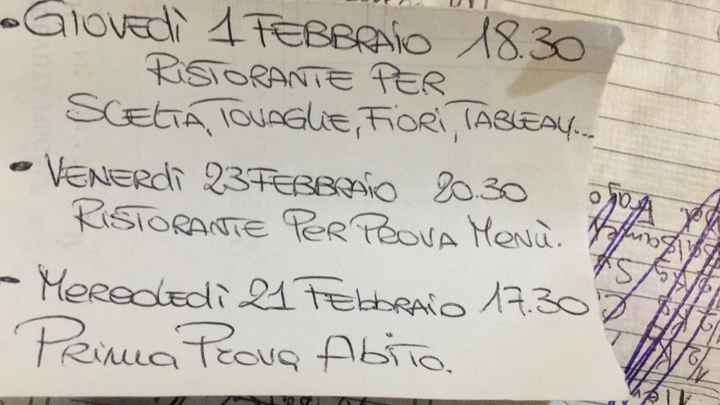 • Giovedì 1 FEBBRAIO 18.30
RISTORANTE PER
SCELTA, TOVAGLIE, FIORI, TABLEAU...
• VENERDÌ 23 FEBBRAIO 20.30
RISTORANTE PER PROVA MENÙ.
- MERCOLEDÌ 21 FEBBRAIO 17.30
PRIMA PROVA ABITO.